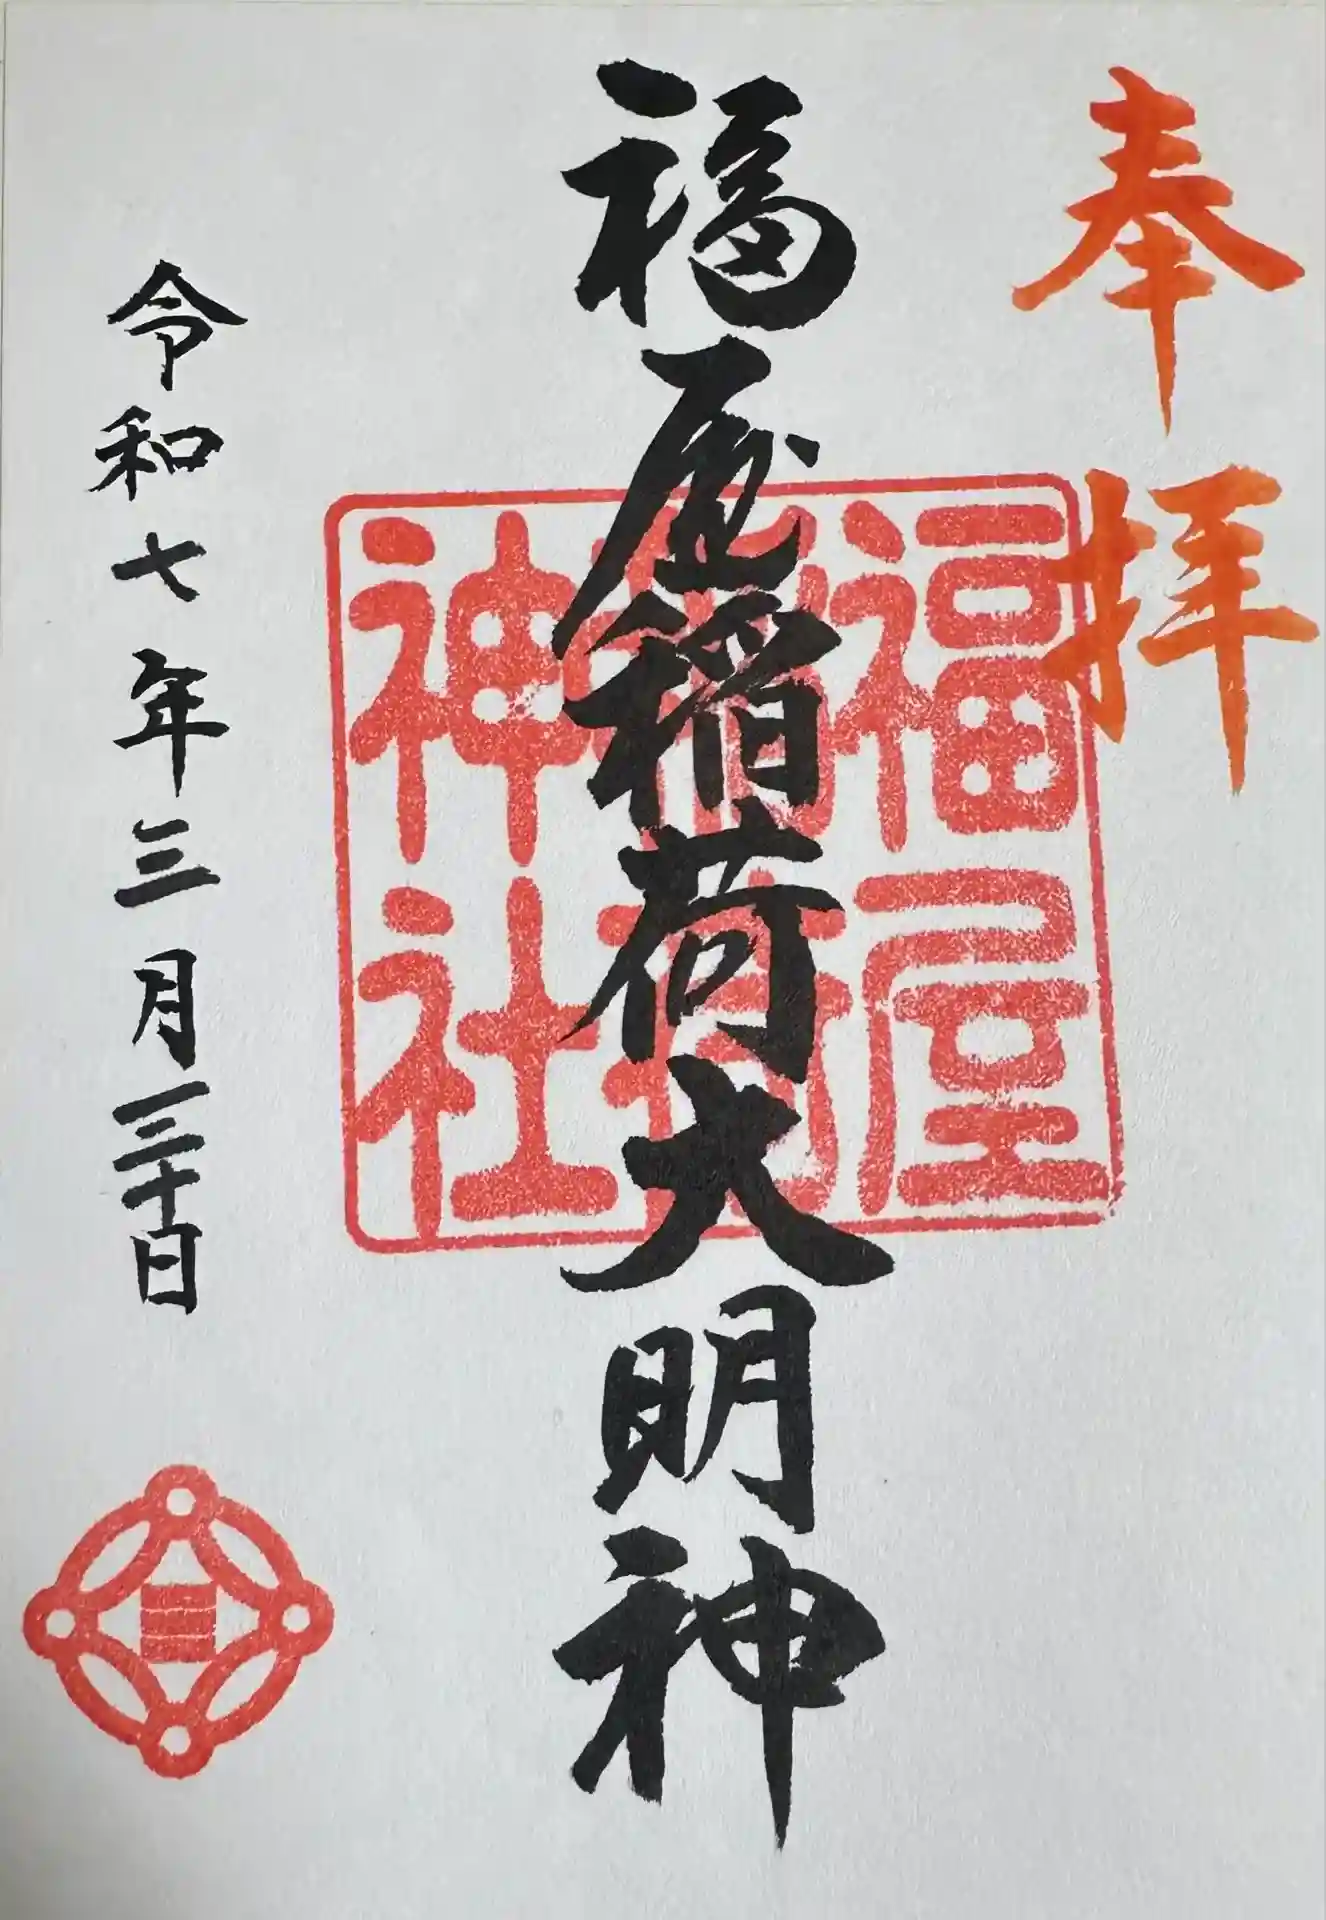 奉拝
福屋稲荷大明神
福屋
稲荷
神社
令和七年三月三十日